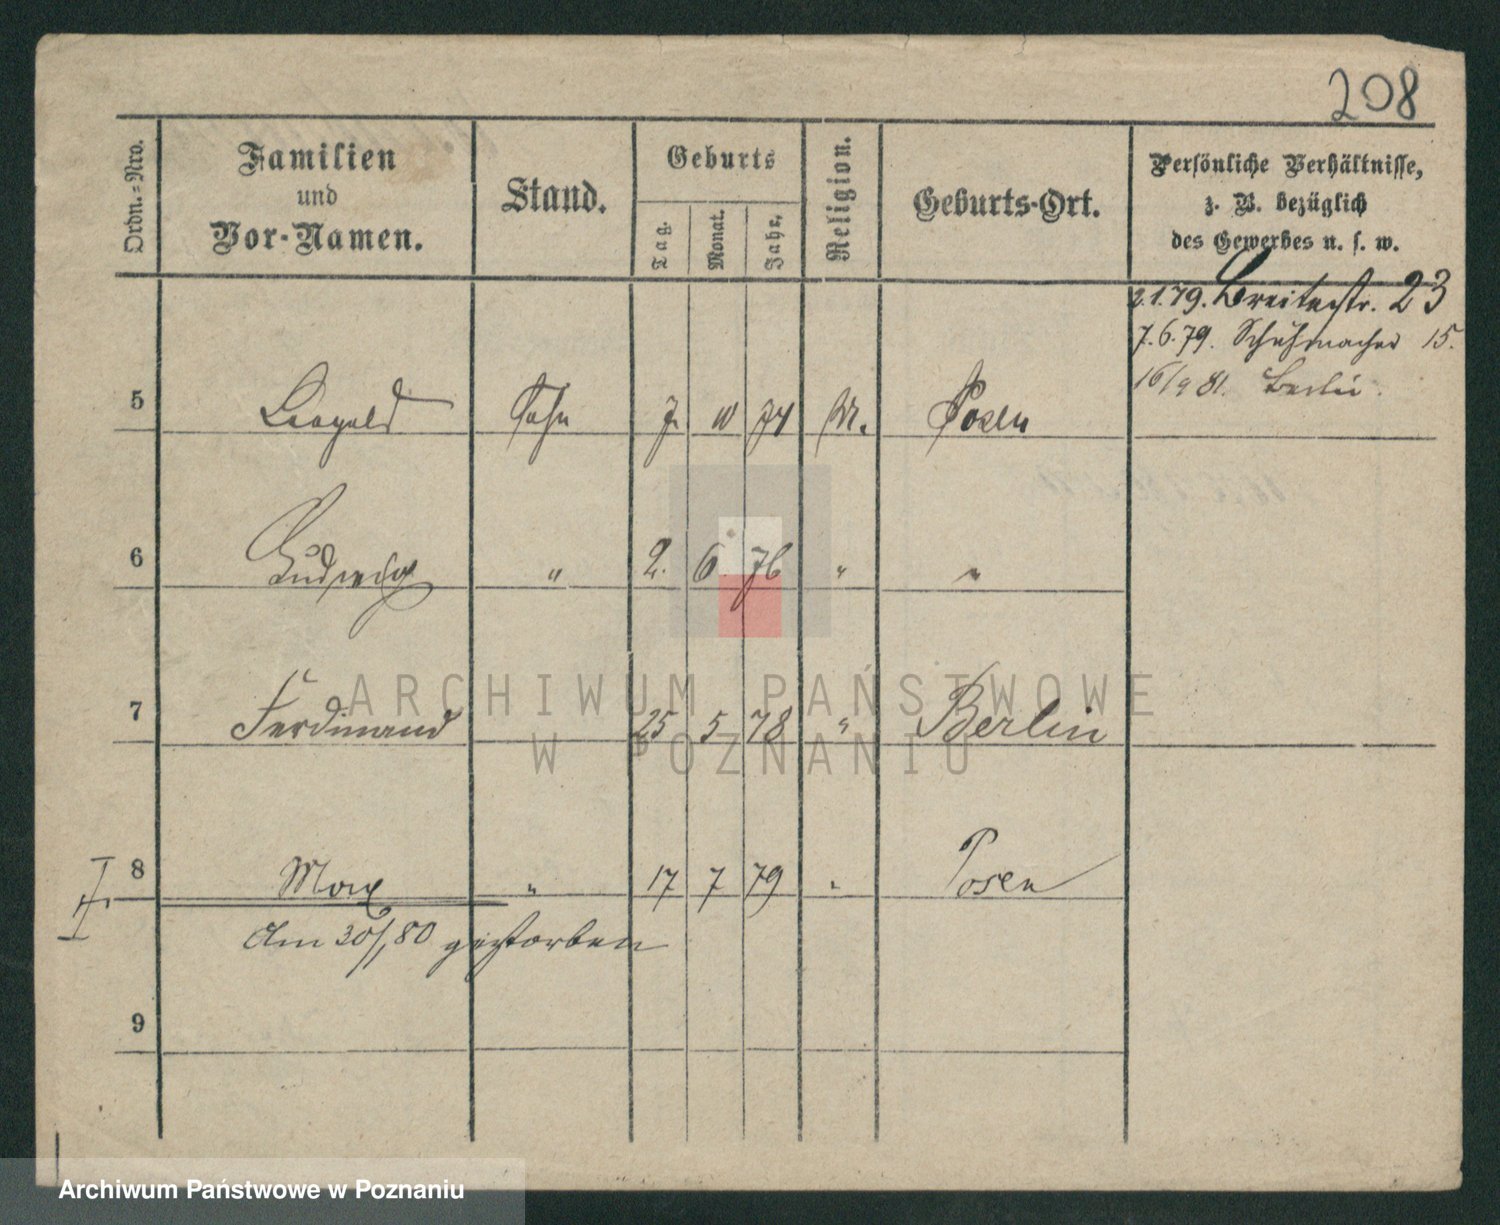 208
Ordn.=Nro.
Familien
und
Vor-Namen.
Stand.
Geburts
Tag.
Monat.
Jahr.
Religion.
Geburts-Ort.
Persönliche Verhältnisse,
z. B. bezüglich
des Gewerbes u. s. w.
2.1.79. Breitestr. 23
7.6.79. Schuhmacher 15.
16/9 81. Berlin.
5 Leopold Sohn 7. 10 74 M. Posen
6 Ludwig " 2. 6 76 " "
7 Ferdinand 25 5 78 " Berlin
8 Max " 17 7 79 " Posen
Am 30/1 80 gestorben
9
ARCHIWUM PAŃSTWOWE
W POZNANIU
Archiwum Państwowe w Poznaniu